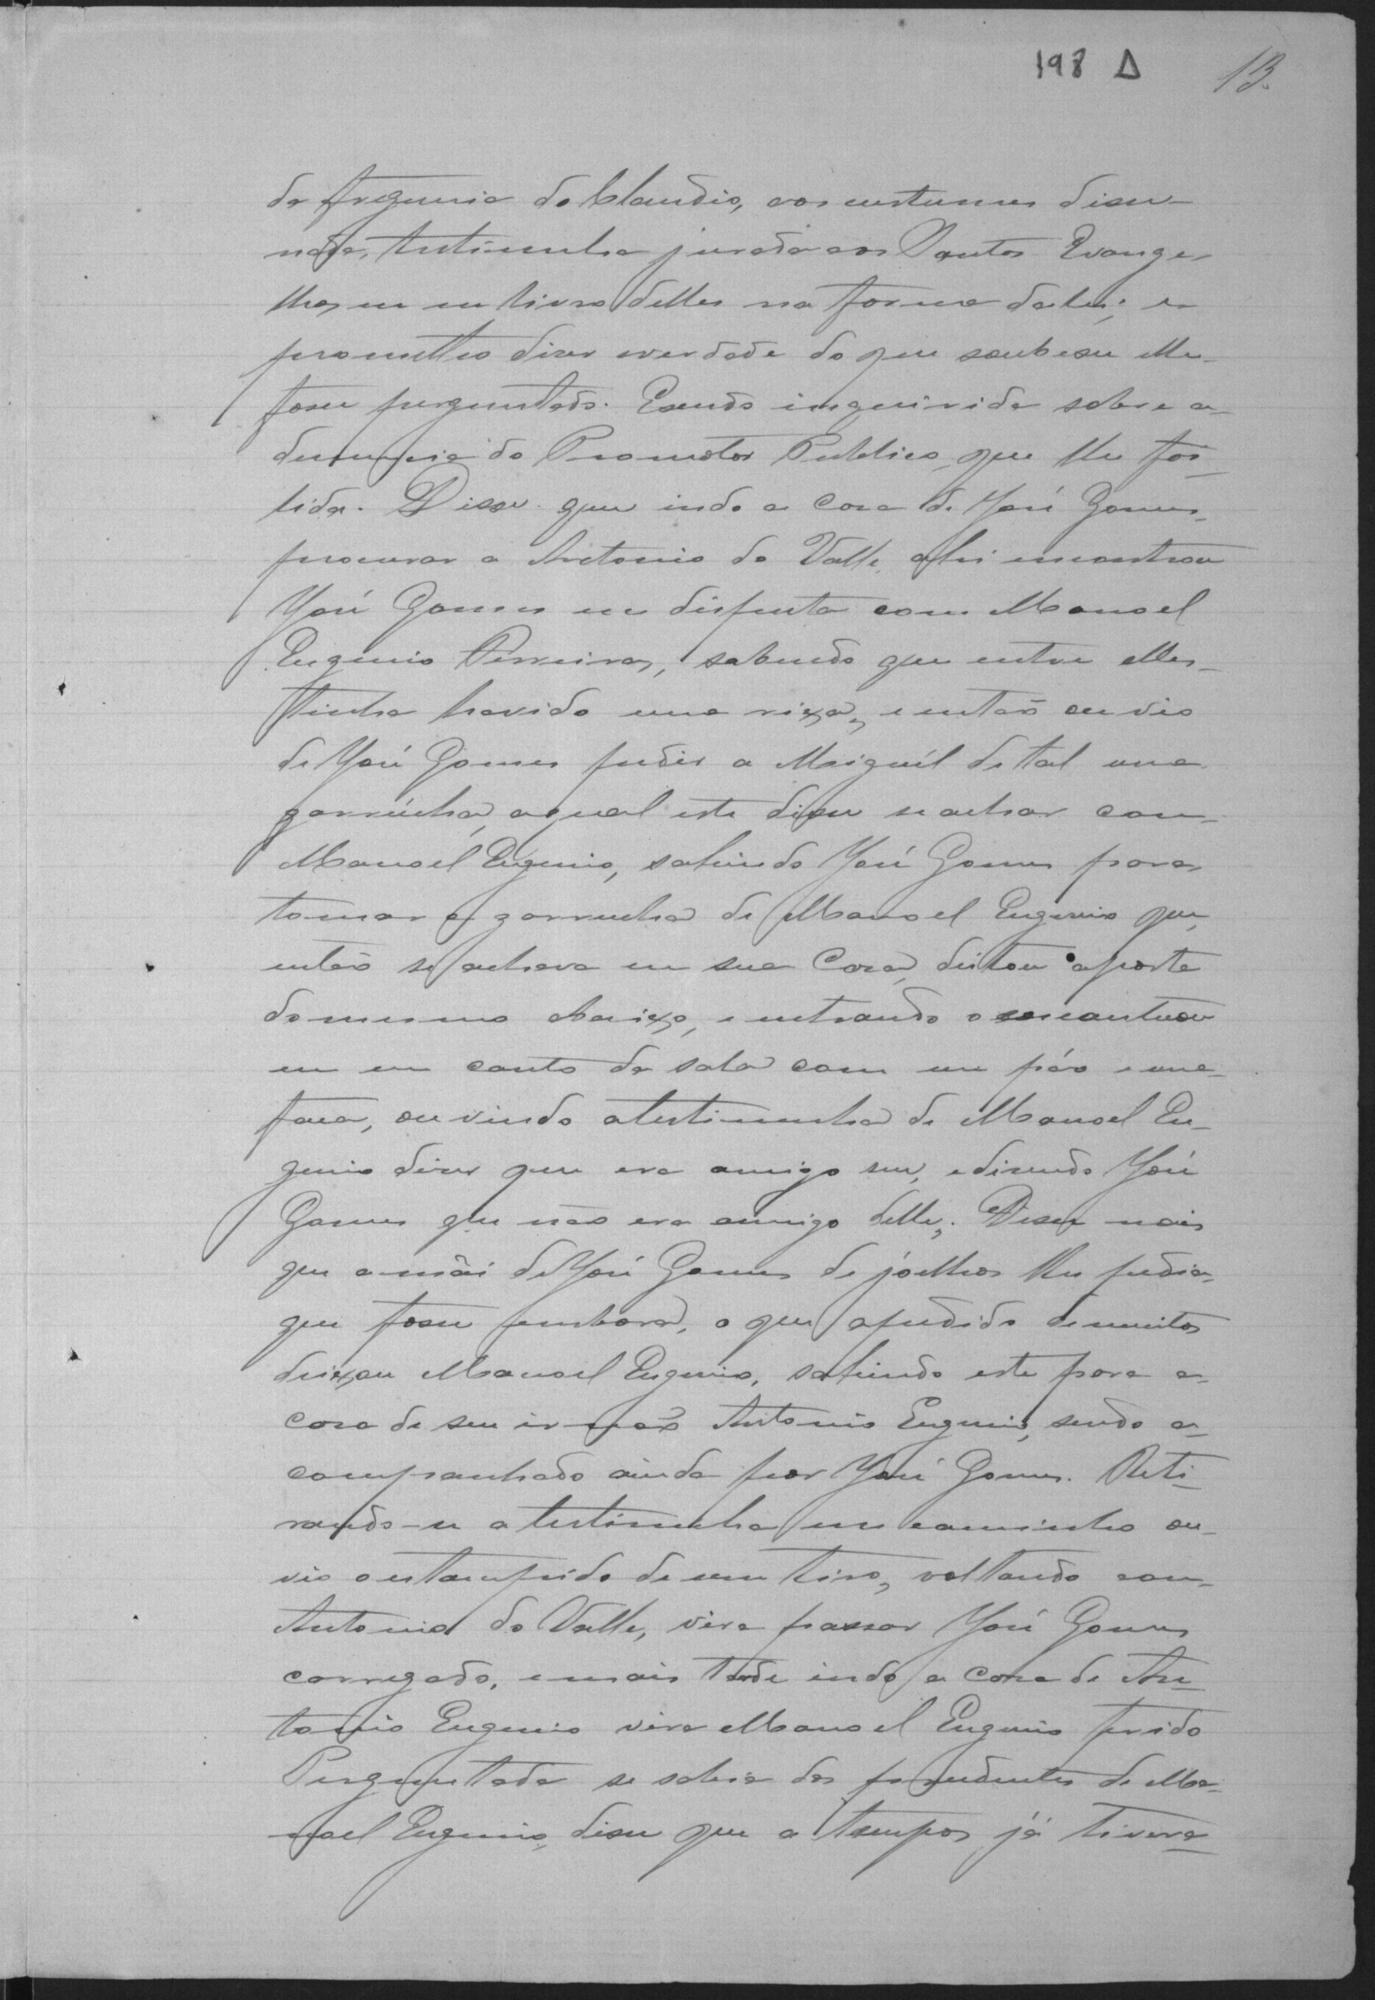 198 Δ 13.
da freguesia do Claudio, aos custumes disse
nada, testimunha jurada aos Santos Evange-
lhos em um livro delles na forma da lei; e
prometteo dizer averdade do que soubesse e lhe
fosse perguntado. Esendo inquirida sobre a
denuncia do Promotor Publico que lhe foi
lida. Disse que indo a casa de José Gomes
procurar a Antonio do Valle, ahi encontrou
José Gomes em disputa com Manoel
Eugenio Pereira, sabendo que entre elles
tinha havido uma rixa, e então ouvio
de José Gomes pedir a Miguél de tal uma
garrúcha, aqual este disse se achar com
Manoel Eugenio, sahindo José Gomes para
tomar a garrucha de Manoel Eugenio que,
então se achava em sua Casa, deitou aporta
do mesmo abaixo, e entrando o encontrou
em um canto da sala com um páo e uma
faca, ouvindo atestimunha de Manoel Eu-
genio dizer que era amigo seu, edizendo José
Gomes que não era amigo delle. Disse mais
que amãi de José Gomes de joelhos lhe pedia
que fosse embora, o que apedido de muitos
deixou Manoel Eugenio, sahindo este para a
casa de seu irmão Antonio Eugenio, sendo a-
companhado ainda por José Gomes. Reti-
rando-se atestimunha em caminho ou-
vio oestampido de um tiro, voltando com
Antonio do Valle, vira passar José Gomes
carregado, emais tarde indo a casa de An-
tonio Eugenio vira Manoel Eugenio ferido
Perguntada se sabia dos precedentes de Ma-
noel Eugenio, disse que a tempos já tivera